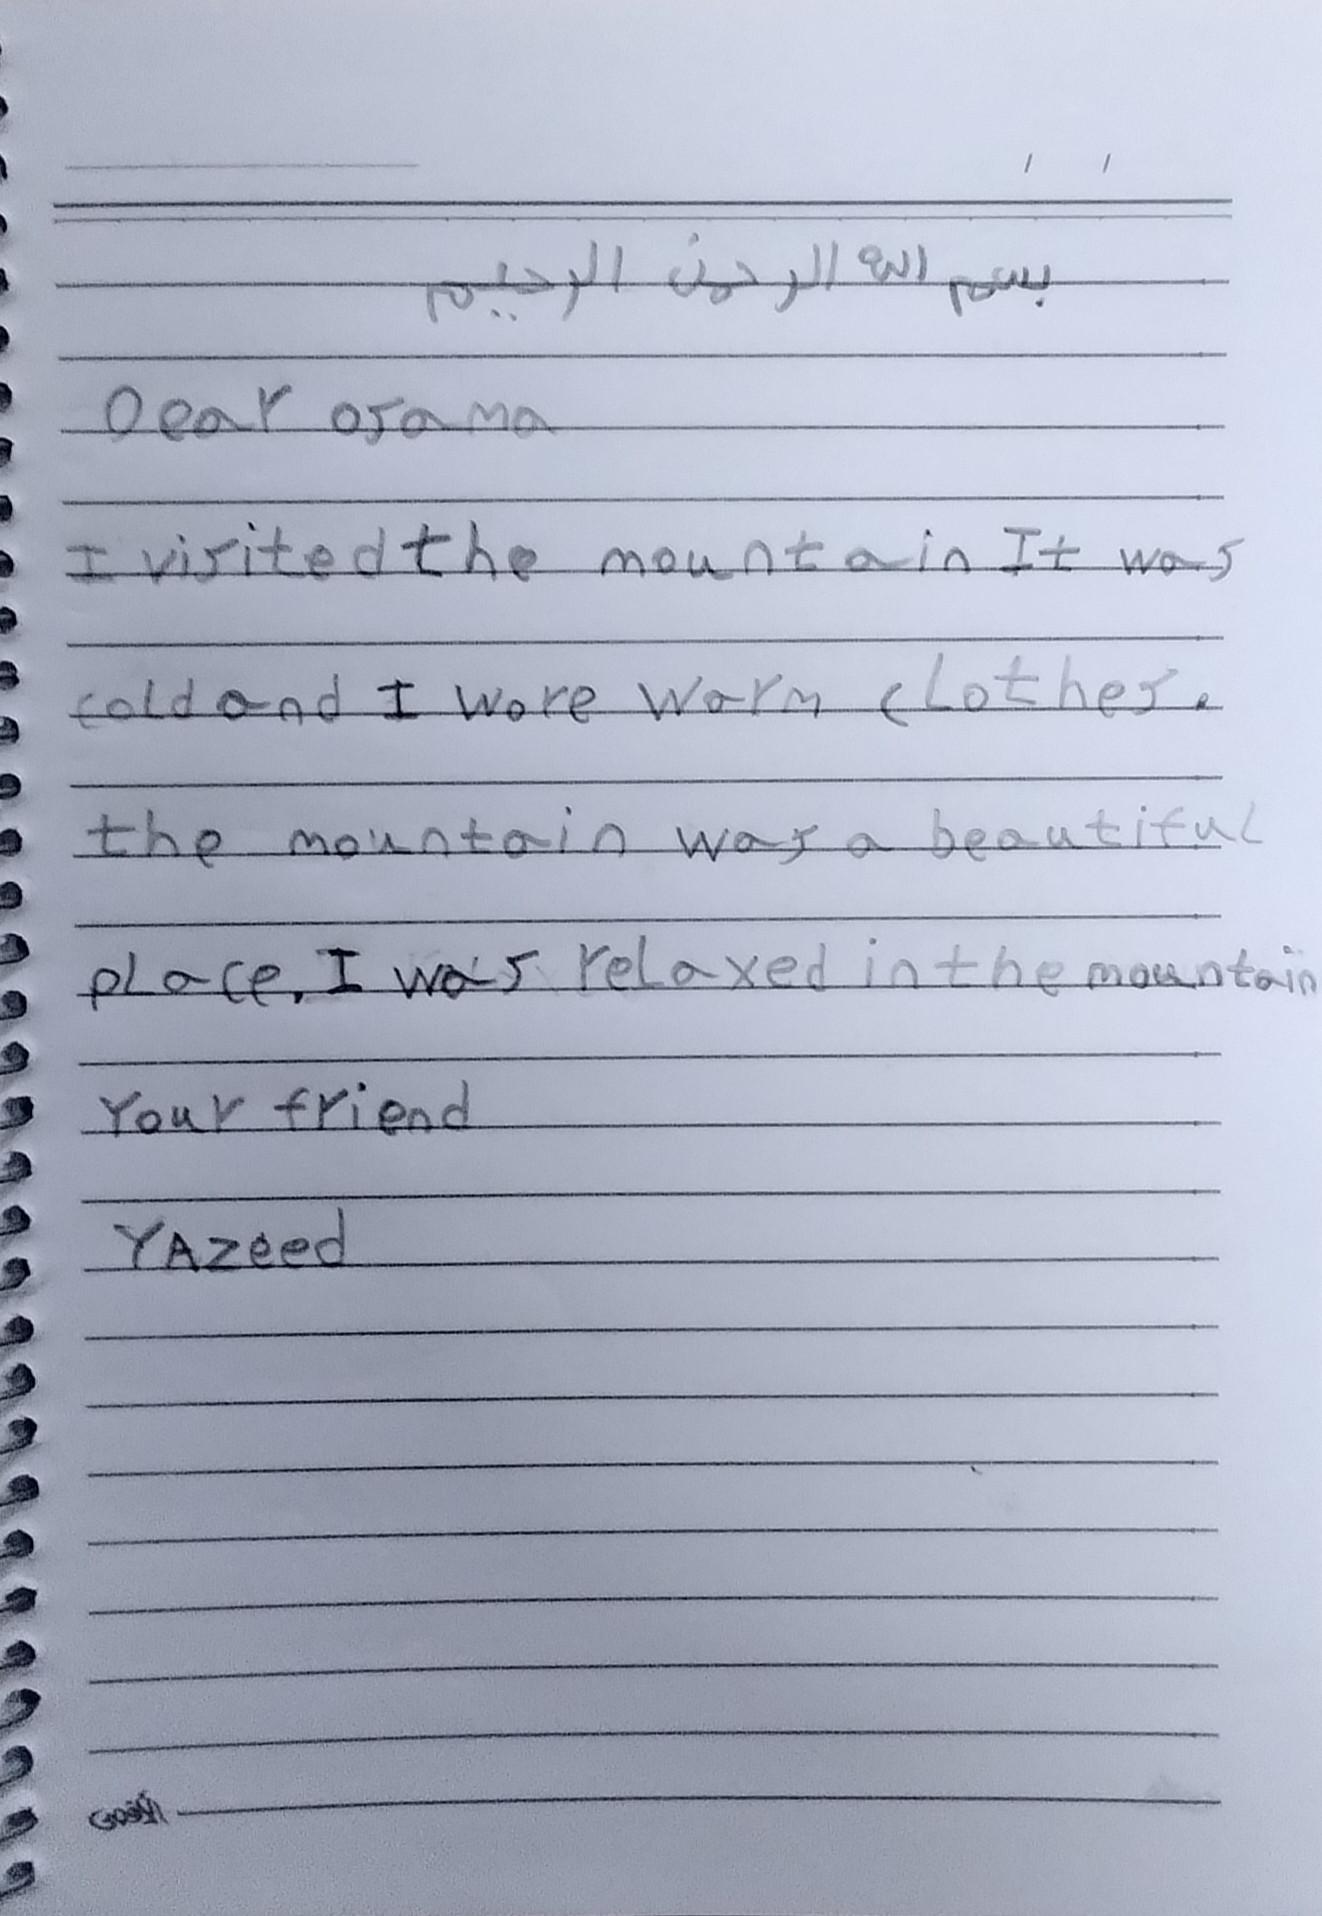 بسم الله الرحمن الرحيم
Dear osama
I visited the mountain It was
cold and I wore warm cLothes.
the mountain was a beautifuL
place. I was relaxed in the mountain
Your friend
YAzeed